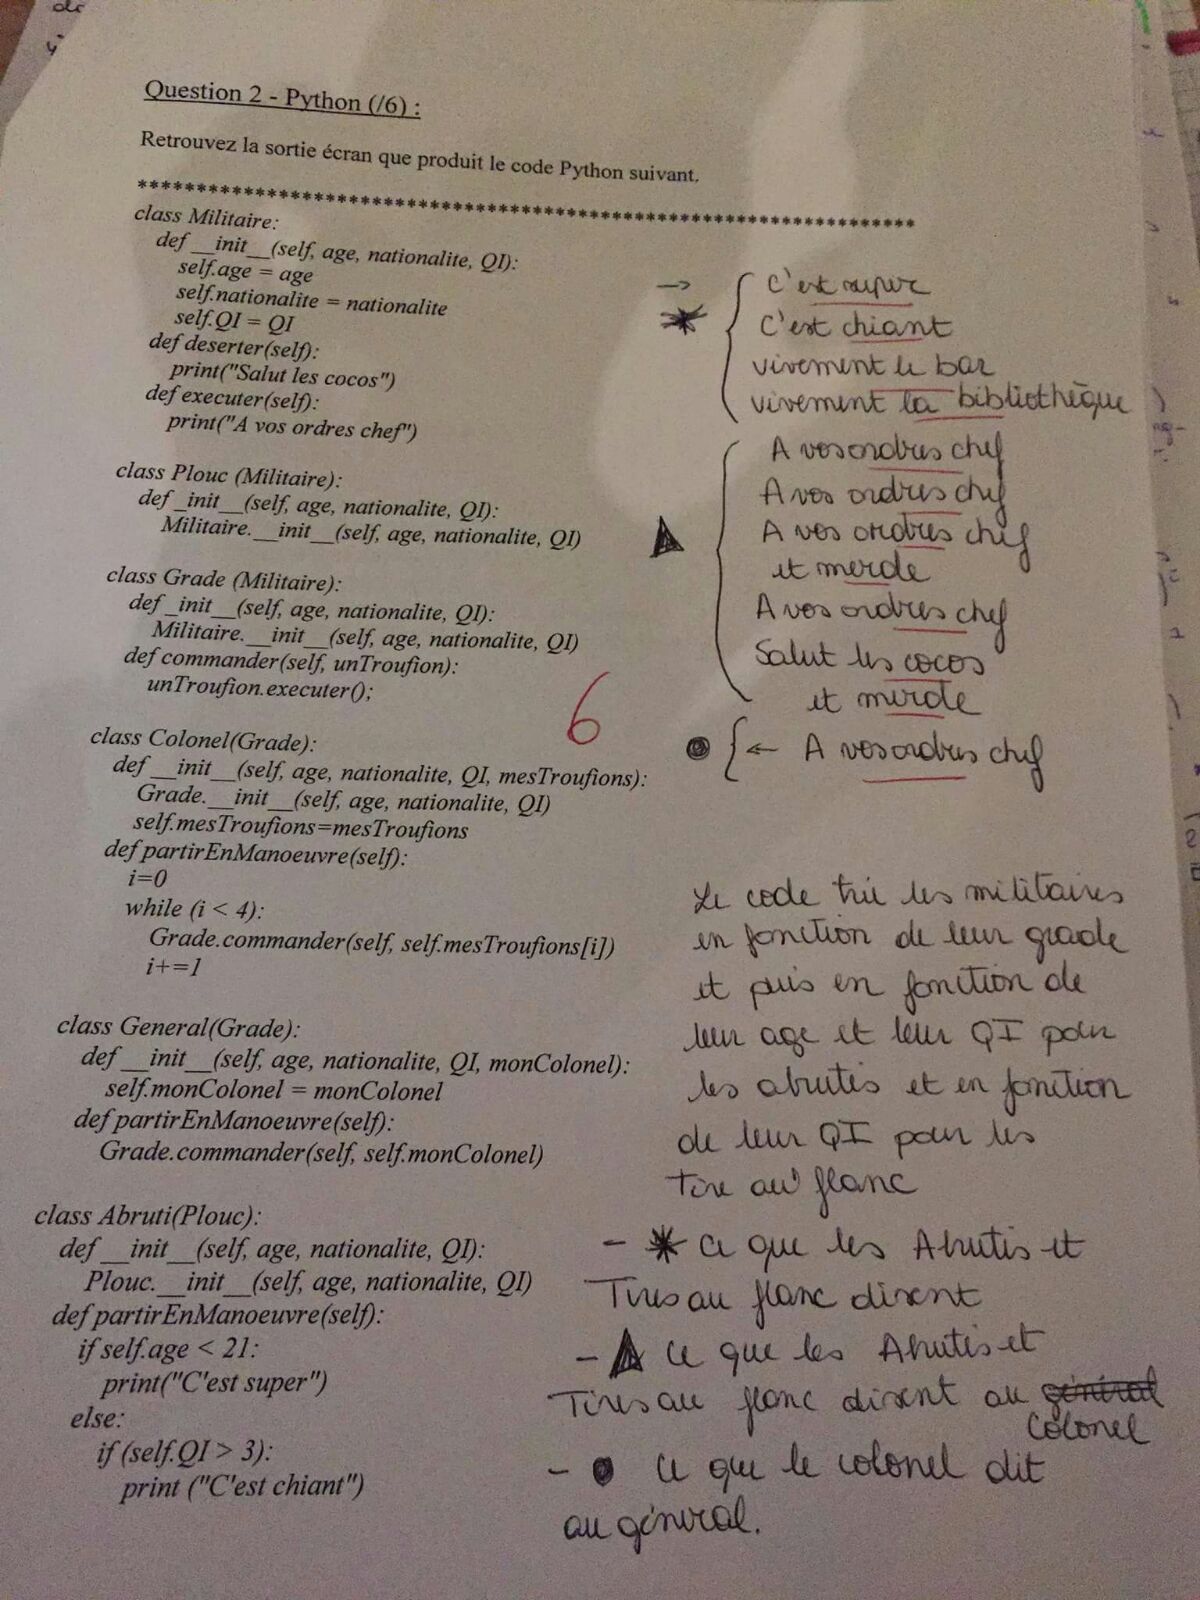 Question 2 - Python (/6) :
Retrouvez la sortie écran que produit le code Python suivant.
******************************************************************
class Militaire:
def __init__(self, age, nationalite, QI):
self.age = age
self.nationalite = nationalite
self.QI = QI
def deserter(self):
print("Salut les cocos")
def executer(self):
print("A vos ordres chef")
class Plouc (Militaire):
def _init__(self, age, nationalite, QI):
Militaire.__init__(self, age, nationalite, QI)
class Grade (Militaire):
def _init__(self, age, nationalite, QI):
Militaire.__init__(self, age, nationalite, QI)
def commander(self, unTroufion):
unTroufion.executer();
class Colonel(Grade):
def __init__(self, age, nationalite, QI, mesTroufions):
Grade.__init__(self, age, nationalite, QI)
self.mesTroufions=mesTroufions
def partirEnManoeuvre(self):
i=0
while (i < 4):
Grade.commander(self, self.mesTroufions[i])
i+=1
class General(Grade):
def __init__(self, age, nationalite, QI, monColonel):
self.monColonel = monColonel
def partirEnManoeuvre(self):
Grade.commander(self, self.monColonel)
class Abruti(Plouc):
def __init__(self, age, nationalite, QI):
Plouc.__init__(self, age, nationalite, QI)
def partirEnManoeuvre(self):
if self.age < 21:
print("C'est super")
else:
if (self.QI > 3):
print ("C'est chiant")
→ C'est super
C'est chiant
vivement le bar
vivement la bibliothèque
A vos ordres chef
A vos ordres chef
A vos ordres chef
et merde
A vos ordres chef
Salut les cocos
et merde
6
← A vos ordres chef
Le code trie les militaires
en fonction de leur grade
et puis en fonction de
leur age et leur QI pour
les abrutis et en fonction
de leur QI pour les
Tire au' flanc
- * Ce que les Abrutis et
Tires au flanc disent
- ▲ Ce que les Abrutis et
Tires au flanc disent au général
Colonel
- ● Ce que le colonel dit
au général.